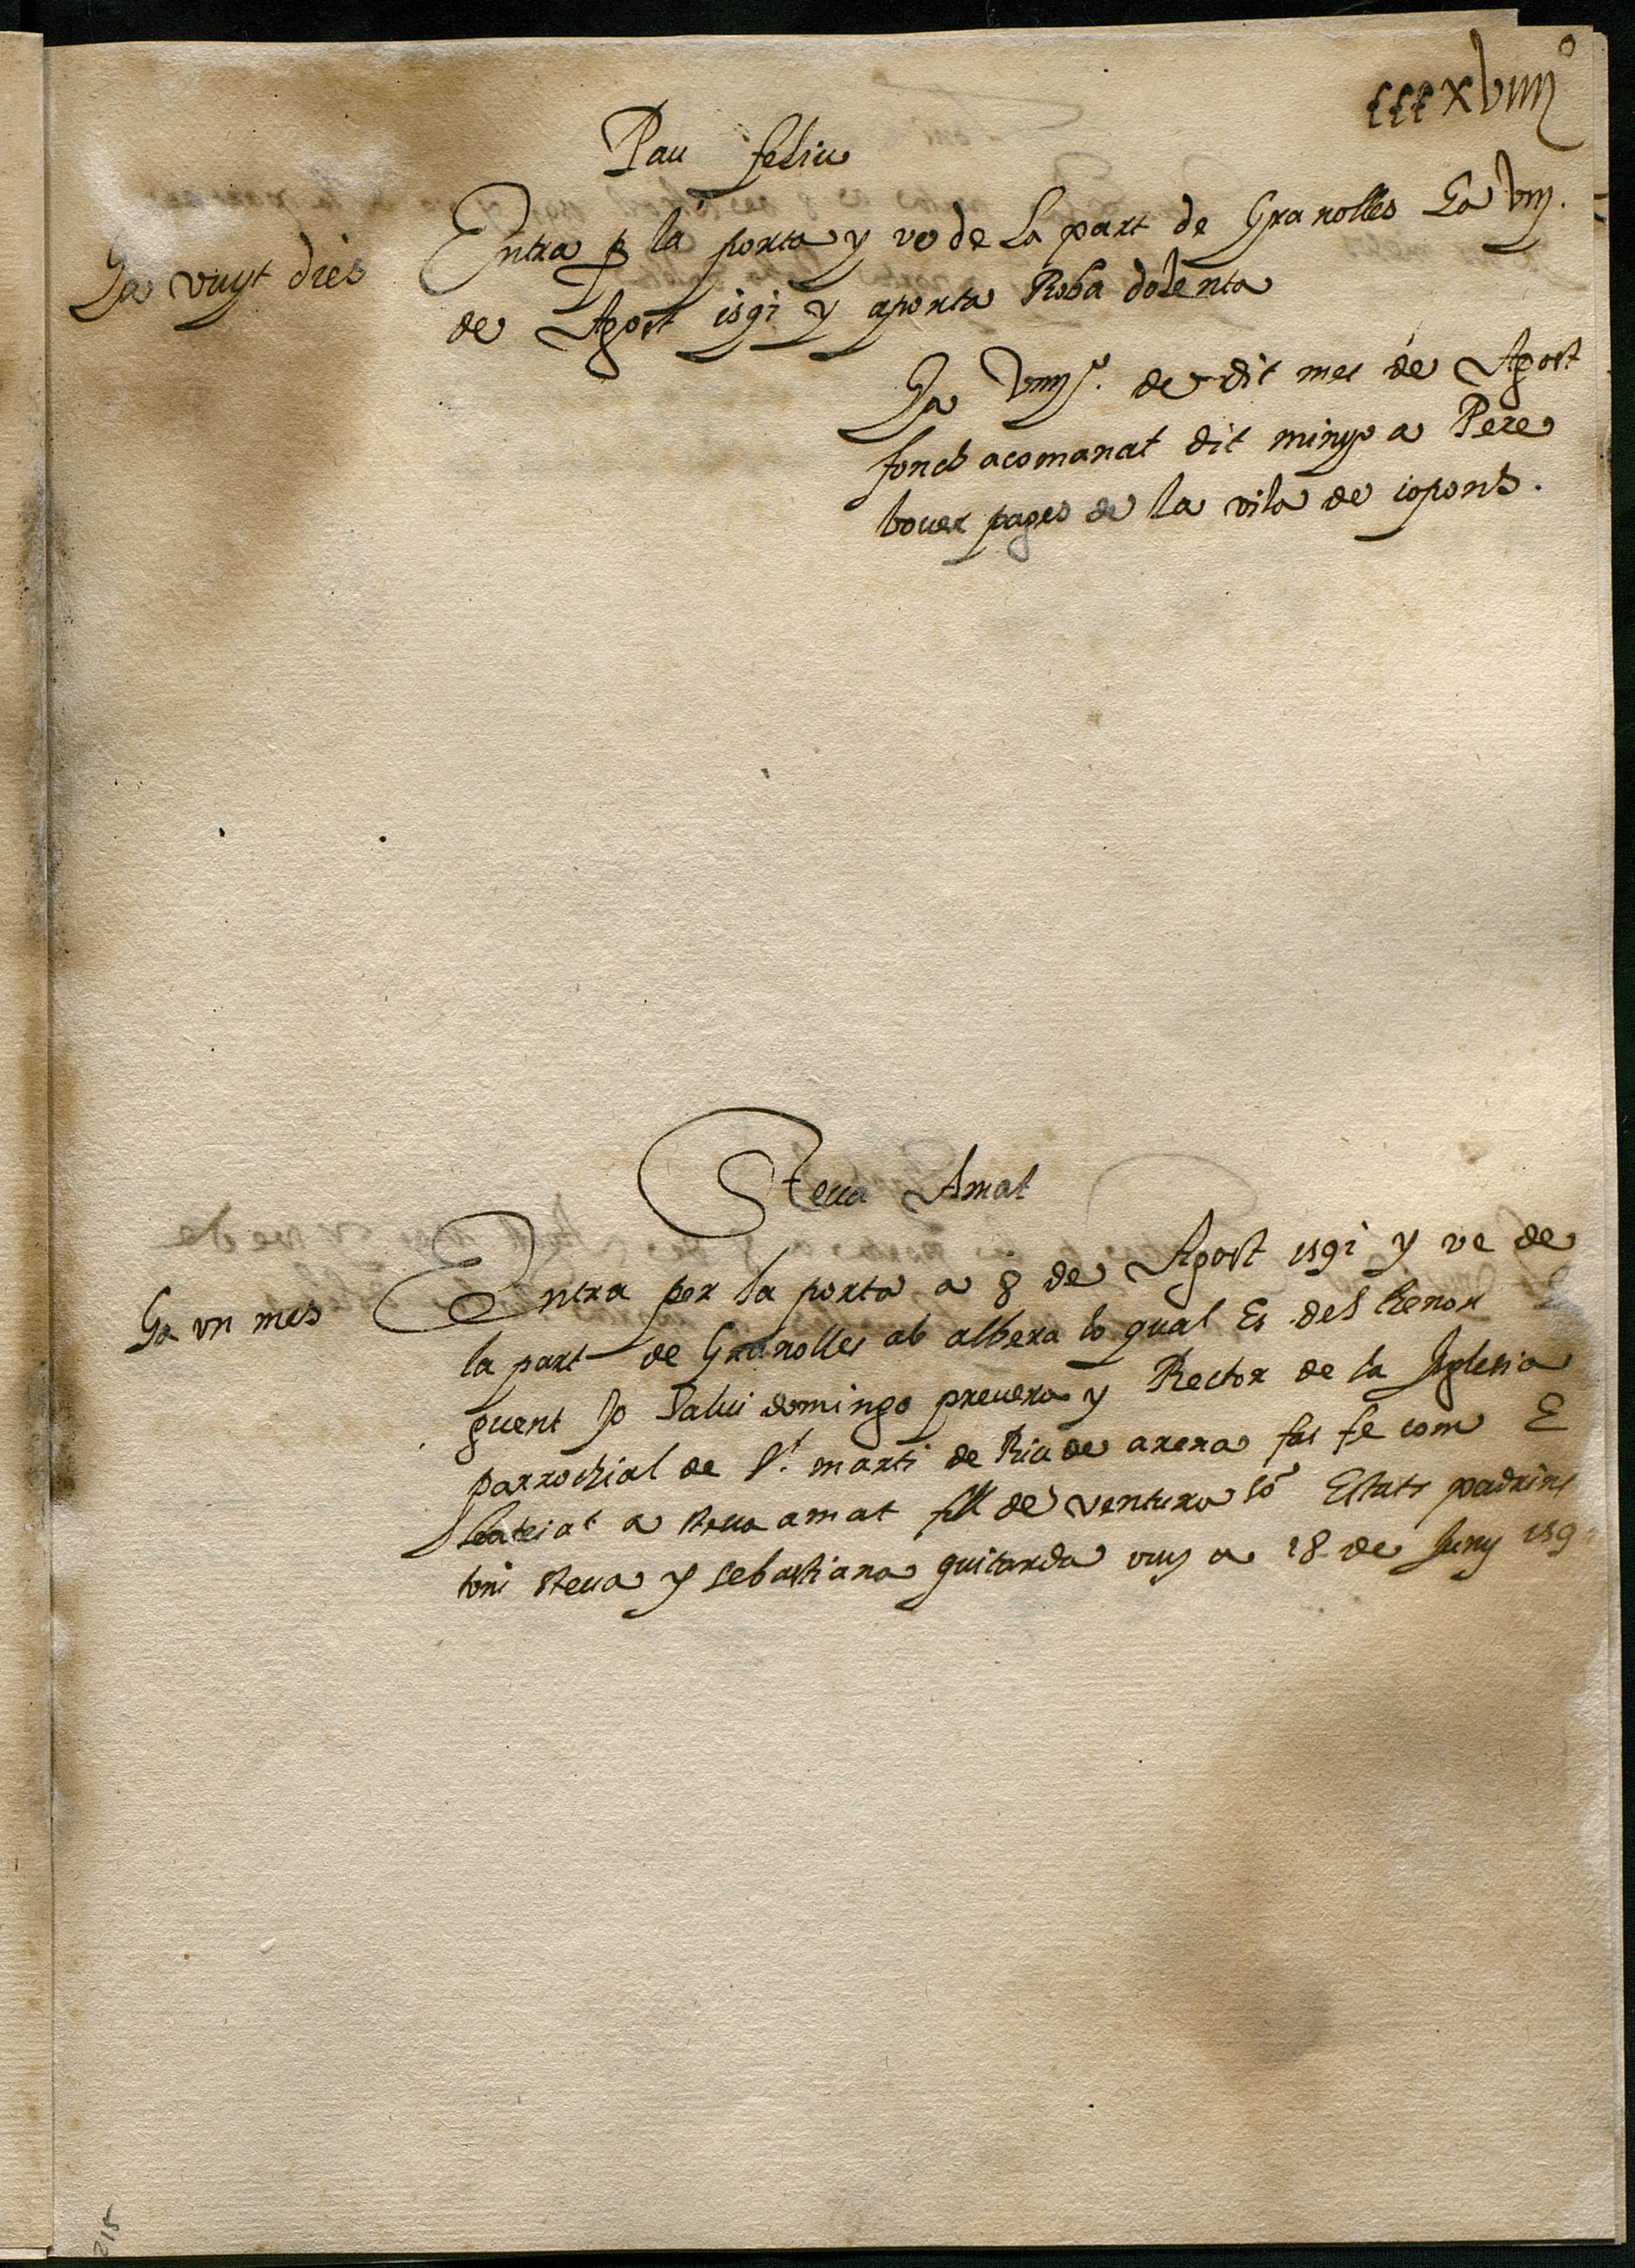 cccxviiij°
Pau feliu
Ha vuyt dies
Entra p la porta y ve de la part de Granolles Ha viij.
de Agost 1591 y aporta Roba dolenta
Ha viiij. de dit mes de Agost
fonch acomanat dit minyo a Pere
bover pages de la vila de copons.
Steva Amat
Ha vn mes
Entra per la porta a 8 de Agost 1591 y ve de
la part de Granolles ab albera lo qual Es del thenor
guent Jo Salvi domingo prevera y Rector de la Iglesia
parrochial de St. marti de Riu de arena fas fe com E
bateiat a steva amat fill de ventura só Estats padrins
toni steva y sebastiana guitarda vuy a 18 de Juny 159
215